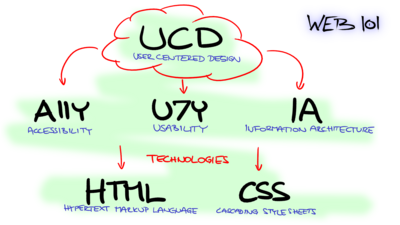 WEB 101
UCD
USER CENTERED DESIGN
A11Y U7Y IA
ACCESSIBILITY USABILITY INFORMATION ARCHITECTURE
TECHNOLOGIES
HTML CSS
HYPERTEXT MARKUP LANGUAGE CASCADING STYLE SHEETS